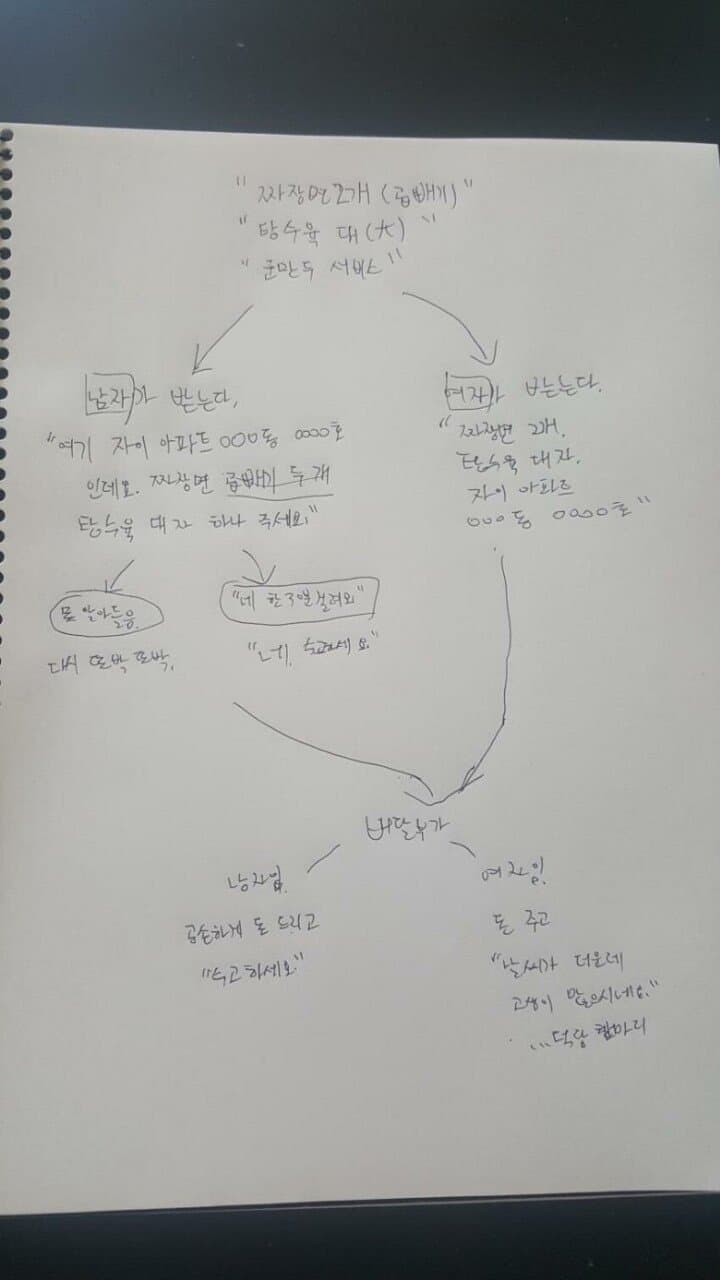 "짜장면 2개 (곱빼기)"
"탕수육 대(大)"
"군만두 서비스"
남자가 받는다.
"여기 자이 아파트 000동 0000호
인데요. 짜장면 곱빼기 두개
탕수육 대자 하나 주세요."
못 알아들음.
다시 또박 또박.
"네 한 30분 걸려요"
"네, 수고하세요."
여자가 받는다.
"짜장면 2개.
탕수육 대자.
자이 아파트
000동 0000호"
배달부가
남자임.
공손하게 돈 드리고
"수고하세요"
여자임.
돈 주고
"날씨가 더운데
고생이 많으시네요."
...덕담 한마디